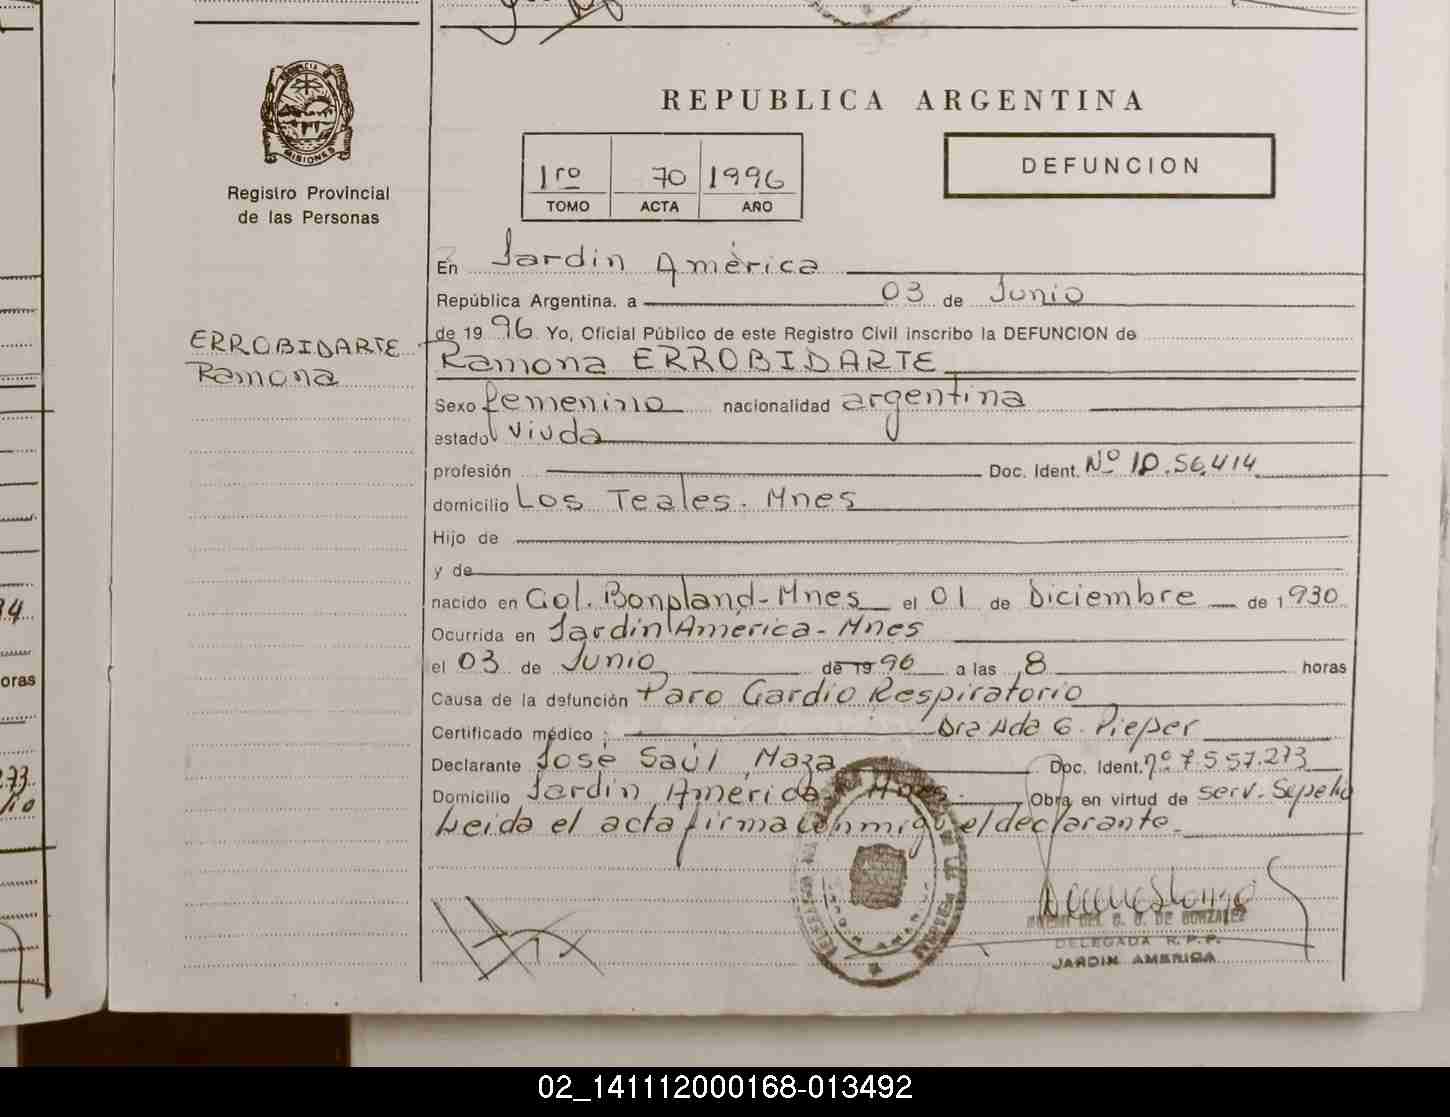 PROVINCIA DE
MISIONES
Registro Provincial
de las Personas
REPUBLICA ARGENTINA
1ro 70 1996
TOMO ACTA AÑO
DEFUNCION
En Jardín América
República Argentina. a 03 de Junio
de 19 96 Yo, Oficial Público de este Registro Civil inscribo la DEFUNCION de
ERROBIDARTE
Ramona
Ramona ERROBIDARTE
Sexo femenino nacionalidad argentina
estado viuda
profesión Doc. Ident. Nº
domicilio Los Teales. Mnes
Hijo de
y de
nacido en Col. Bonpland-Mnes el 01 de Diciembre de 1930
Ocurrida en Jardín América-Mnes
el 03 de Junio de 19 96 a las 8 horas
Causa de la defunción Paro Cardio Respiratorio
Certificado médico : Dra G. Pieper
Declarante José Saúl Maza Doc. Ident. nº 7.557.273
Domicilio Jardín América Mnes. Obra en virtud de serv. Sepelio
Leida el acta firma conmigo el declarante.
DE GONZALEZ
DELEGADA R.P.P.
JARDIN AMERICA
34
oras
273
02_141112000168-013492